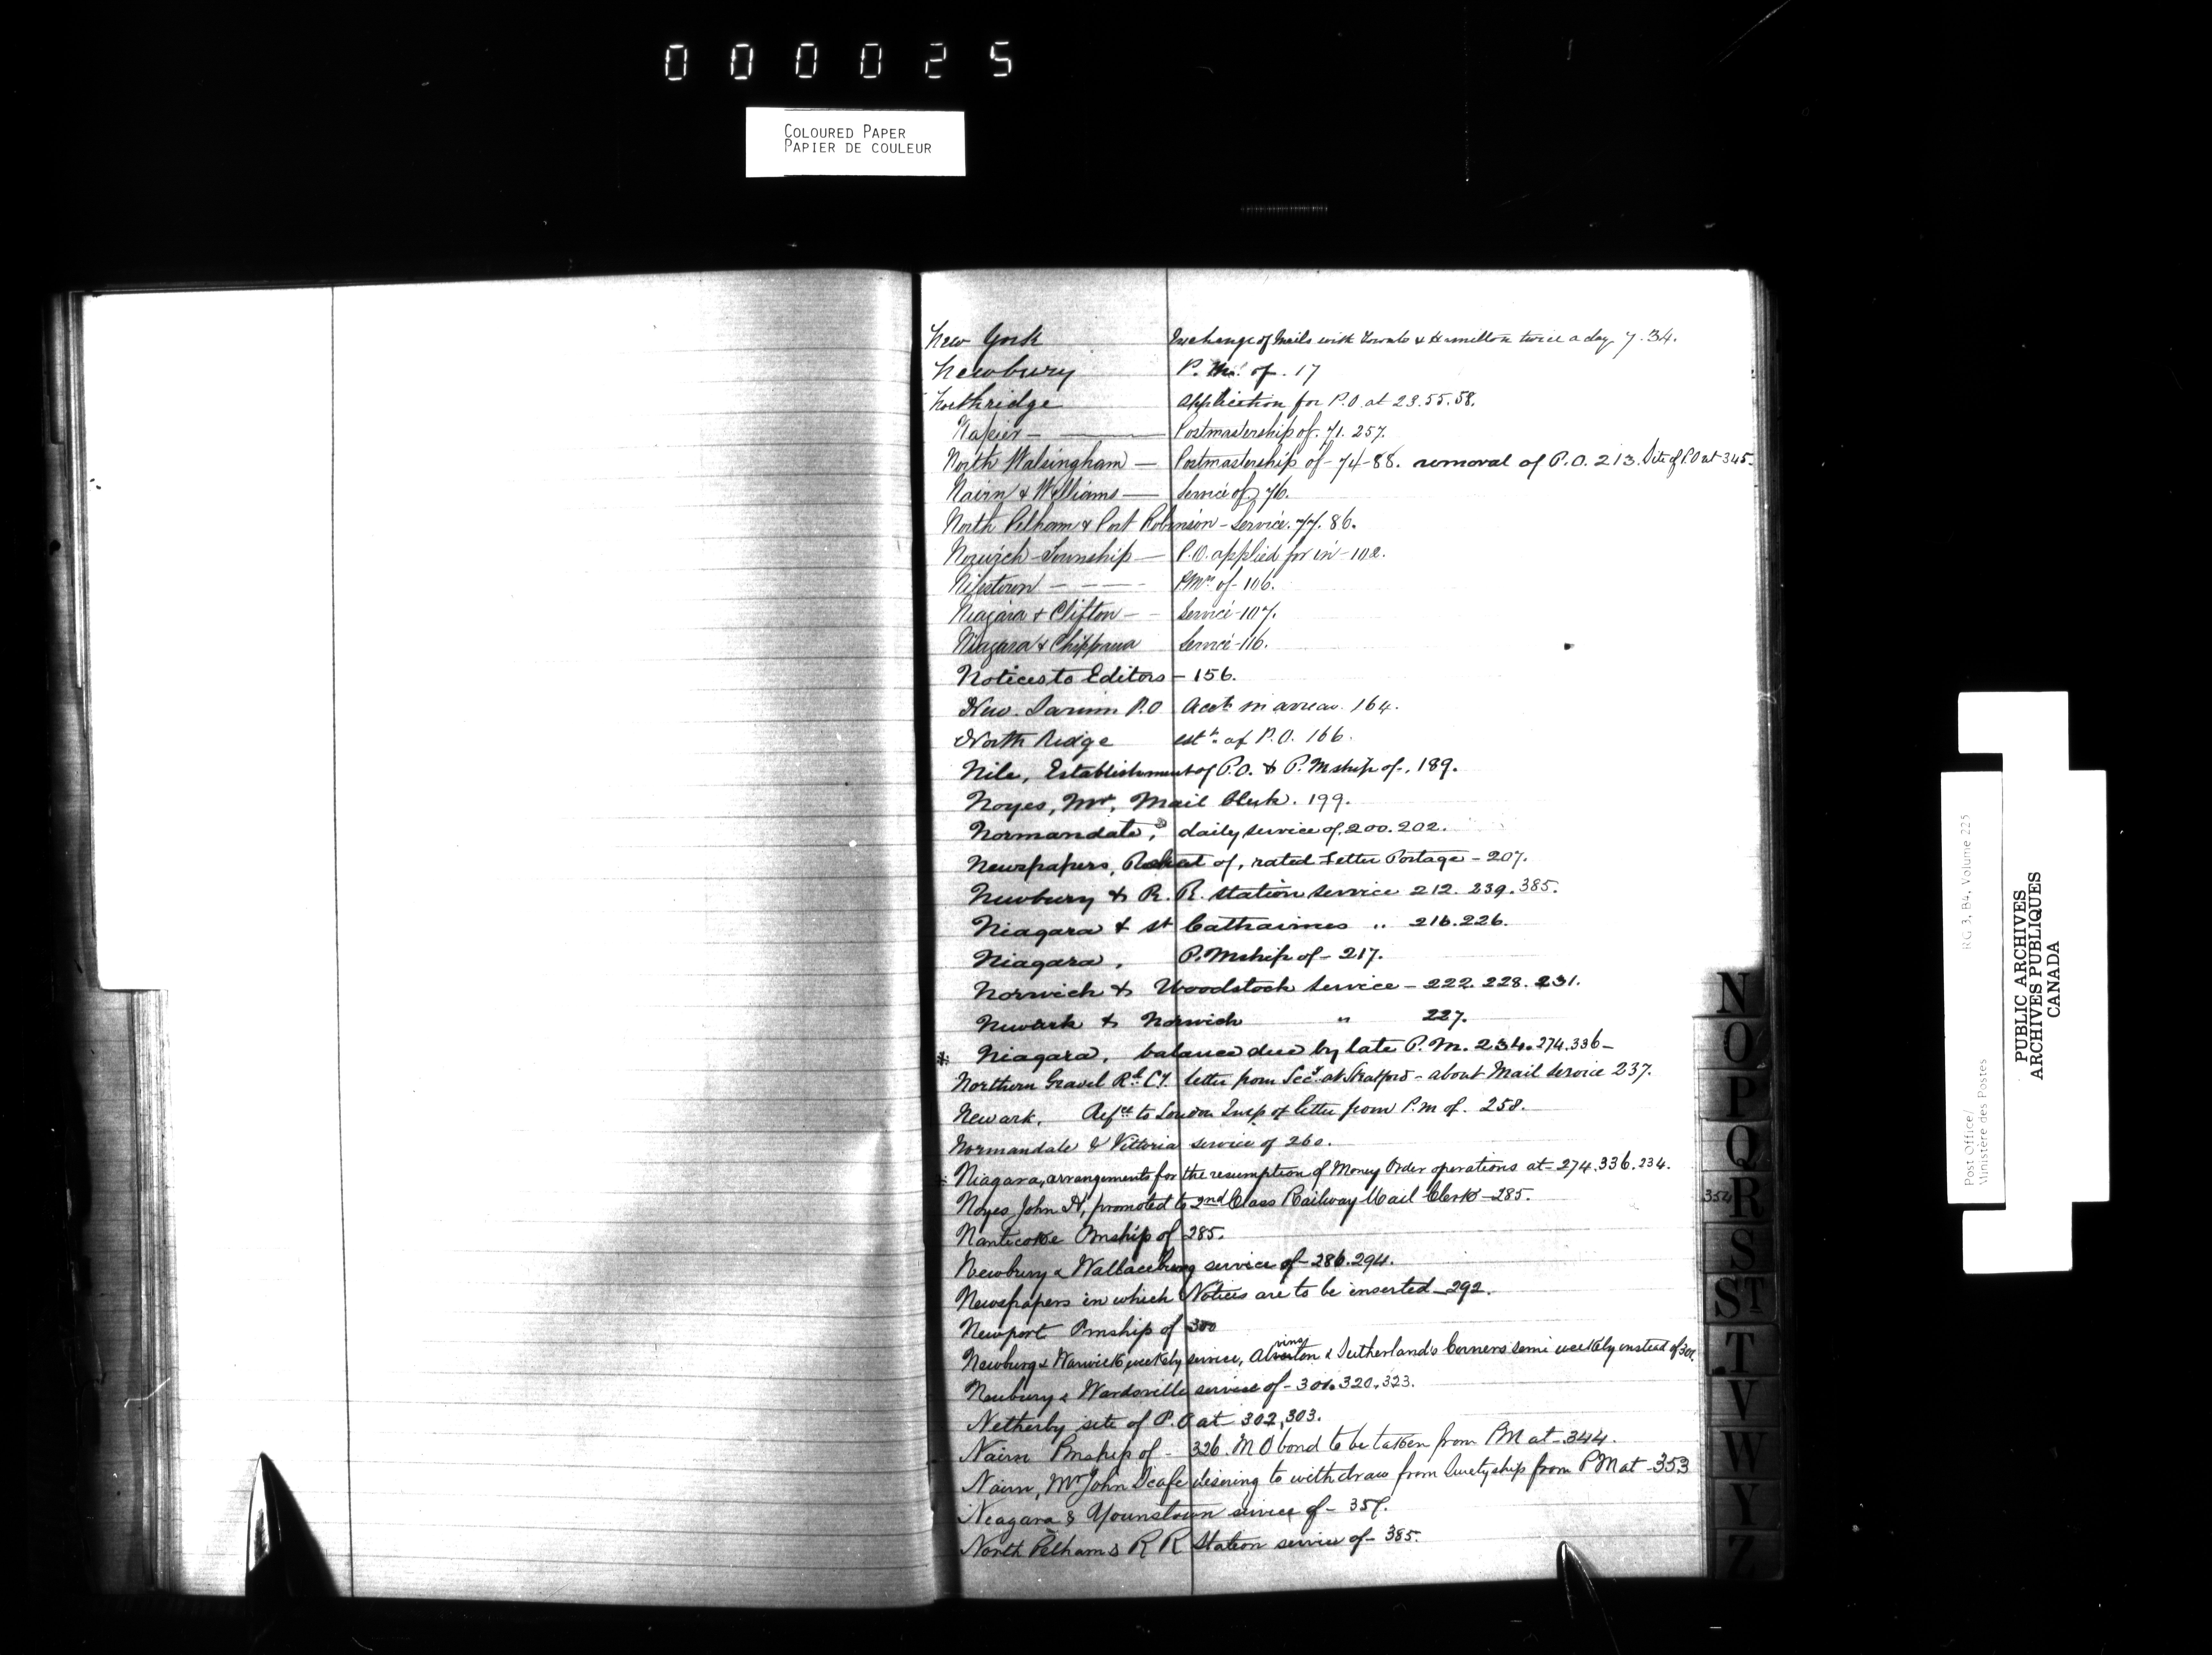 000025
COLOURED PAPER
PAPIER DE COULEUR
New York Exchange of Mails with Toronto & Hamilton twice a day 7.34.
Newbury P. M. of. 17
Northridge application for P.O. at 23.55.58.
Napier — Postmastership of. 71. 257.
North Walsingham — Postmastership of - 74-88. removal of P.O. 213. Site of P.O at 345.
Nairn & Williams — Service of 76.
North Pelham & Port Robinson - Service. 77. 86.
Norwich Township — P.O. applied for in - 102.
Nilestown - - - P.Mr. of - 106.
Niagara & Clifton - - Service - 107.
Niagara & Chippawa Service - 116.
Notices to Editors - 156.
New Sarum P.O Acct. in arrear. 164.
North Ridge estt. of P.O. 166.
Nile, Establishment of P.O. & P. Mship of -. 189.
Noyes, Mr, Mail Clerk. 199.
Normandale, daily service of, 200. 202.
Newspapers, of, rated Letter Postage - 207.
Newbury & R. R. station service 212. 239. 385.
Niagara & St Catharines " 216. 226.
Niagara, P. Mship of - 217.
Norwich & Woodstock Service - 222. 228. 231.
Newark & Norwich " 227.
* Niagara, balance due by late P. M. 234. 274. 336 -
Northern Gravel Rd. Cy. letter from Secy. at Stratford - about Mail Service 237.
Newark, to London Insp. of letter from P.M of. 258.
Normandale & Vittoria service of 260.
* Niagara, arrangements for the resumption of Money Order operations at - 274. 336. 234.
Noyes John H, promoted to 2nd Class Railway Mail Clerk - 285.
Nanticoke Pmship of 285.
Newbury & Wallaceburg service of - 286. 294.
Newspapers in which Notices are to be inserted - 292.
Newport Pmship of 300
Newbury & Warwick weekly service, Alvinston & Sutherland's Corners semi weekly instead of 301.
Newbury & Wardsville service of - 301. 320, 323.
Netherby site of P.O at - 302, 303.
Nairn Pmship of - 326. M O bond to be taken from PM at - 344.
Nairn, Mr John Scafe desiring to withdraw from Suretyship from PM at - 353
Niagara & Younstown service of - 357.
North Pelham & R R Station service of - 385.
N
O
P
Q
354 R
S
ST
T
V
W
Y
Z
Post Office/ RG 3, B4, Volume 225
Ministère des Postes
PUBLIC ARCHIVES
ARCHIVES PUBLIQUES
CANADA